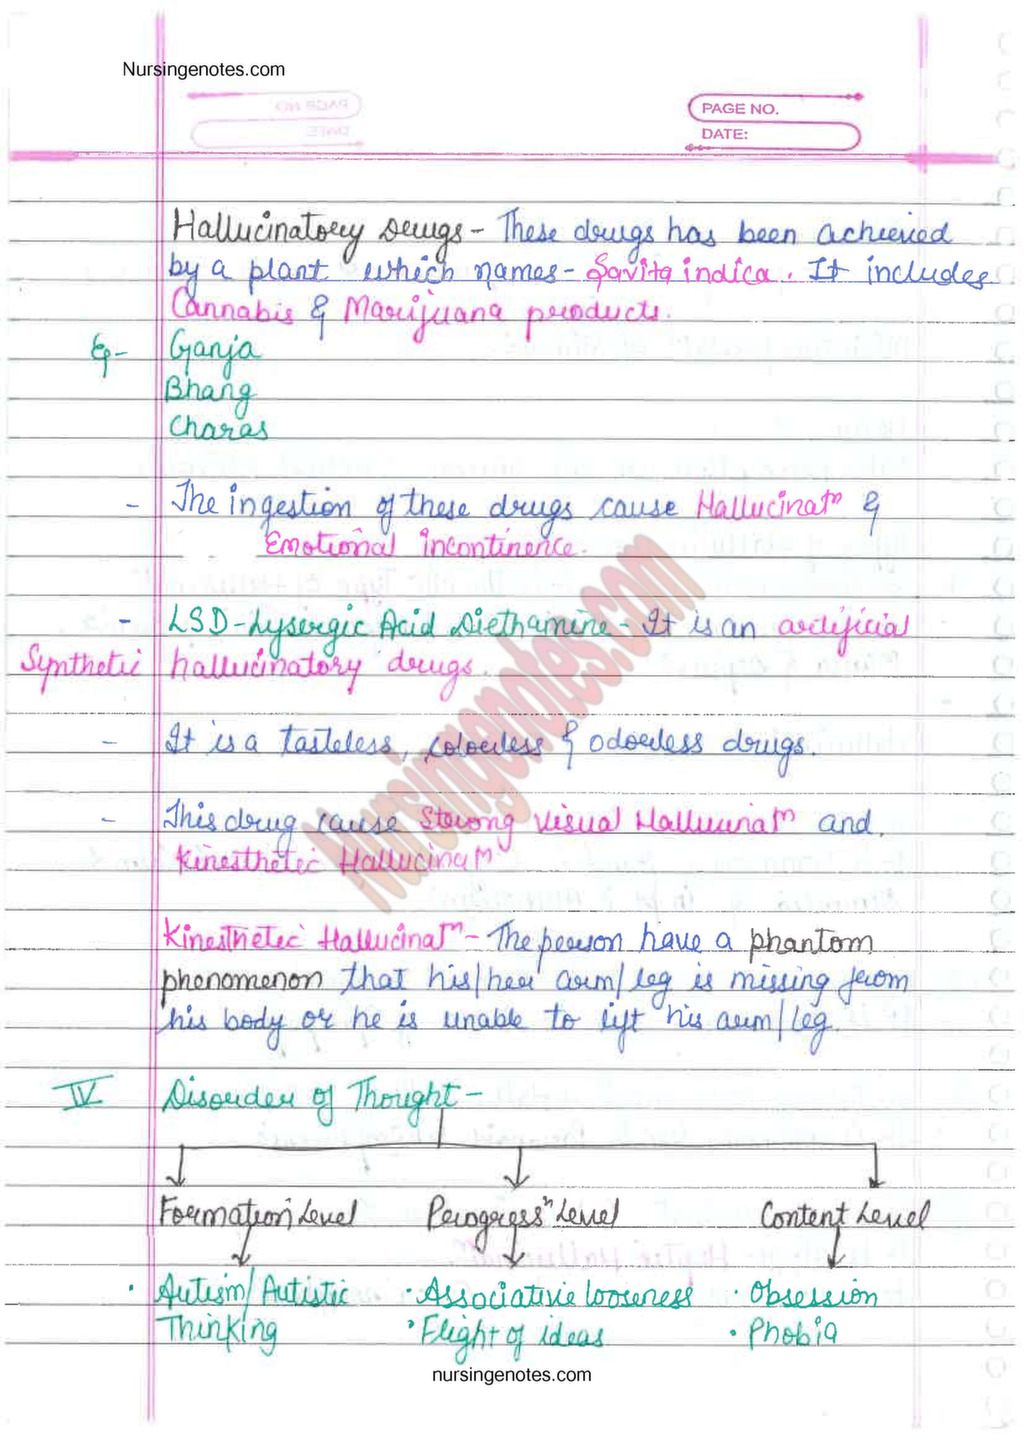 Nursingenotes.com
PAGE NO.
DATE:
Hallucinatory Drugs - These drugs has been achieved
by a plant which names - Savita indica. It includes
Cannabis & Marijuana products.
Eg- Ganja
Bhang
Charas
- The ingestion of these drugs cause Hallucinatn &
Emotional incontinence.
- LSD - Lysergic Acid Diethamine - It is an artificial
Synthetic hallucinatory drugs.
- It is a tasteless, colorless & odorless drugs.
- This drug cause strong visual Hallucinatn and
Kinesthetic Hallucinatn
Kinesthetic Hallucinatn - The person have a phantom
phenomenon that his/her arm/leg is missing from
his body or he is unable to lift his arm/leg.
IV Disorder of Thought -
Formation Level Progressn Level Content Level
· Autism/Autistic · Associative looseness · Obsession
Thinking · Flight of ideas · Phobia
nursingenotes.com
Nursingenotes.com